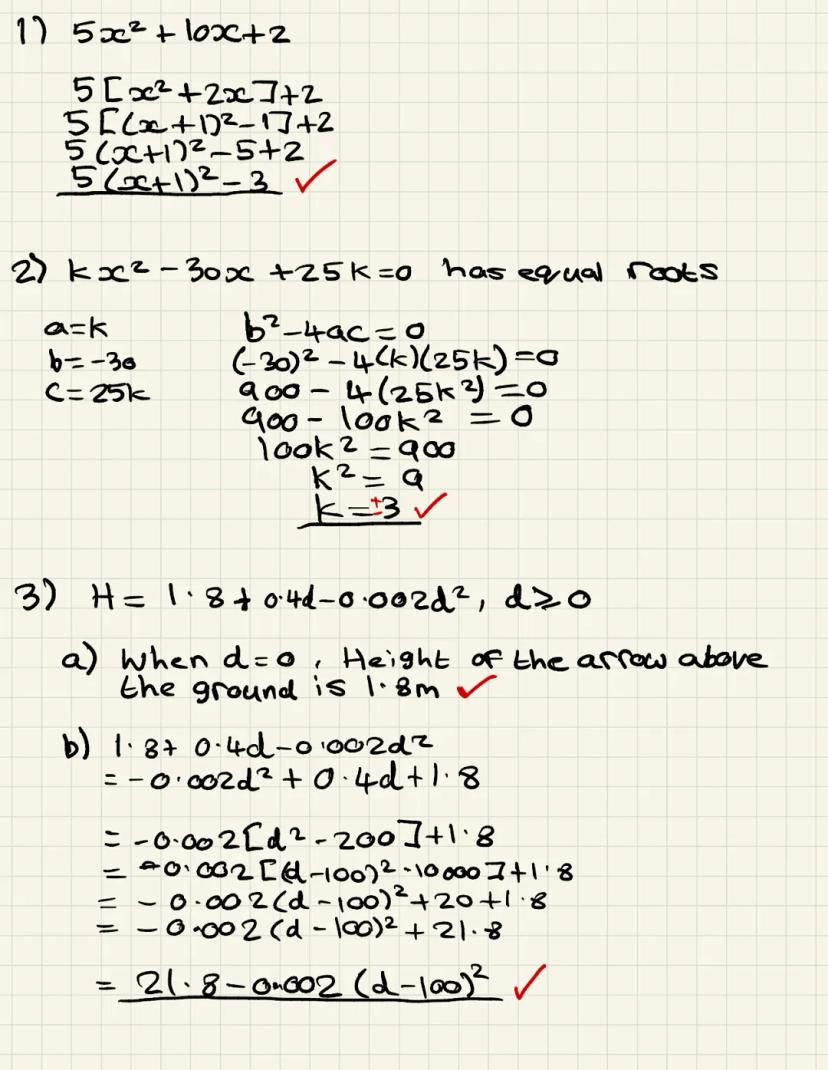 1) 5x² + 10x + 2
5[x² + 2x] + 2
5[(x + 1)² - 1] + 2
5(x+1)² - 5 + 2
5(x+1)² - 3 ✓
2) kx² - 30x + 25k = 0 has equal roots
a = k
b = -30
c = 25k
b² - 4ac = 0
(-30)² - 4(k)(25k) = 0
900 - 4(25k²) = 0
900 - 100k² = 0
100k² = 900
k² = 9
k = ±3 ✓
3) H = 1·8 + 0·4d - 0·002d², d ≥ 0
a) When d = 0, Height of the arrow above
the ground is 1·8m ✓
b) 1·8 + 0·4d - 0·002d²
= -0·002d² + 0·4d + 1·8
= -0·002[d² - 200] + 1·8
= -0·002[(d - 100)² - 10000] + 1·8
= -0·002(d - 100)² + 20 + 1·8
= -0·002(d - 100)² + 21·8
= 21·8 - 0·002(d - 100)² ✓